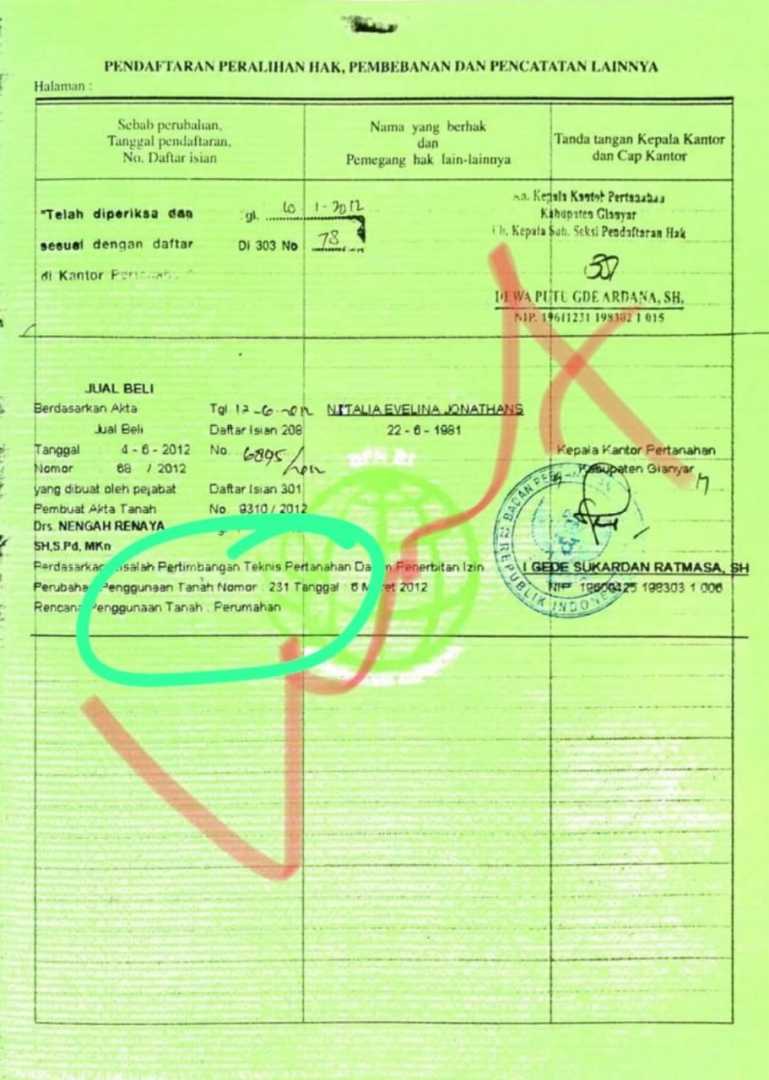 PENDAFTARAN PERALIHAN HAK, PEMBEBANAN DAN PENCATATAN LAINNYA
Halaman :
Sebab perubahan,
Tanggal pendaftaran,
No. Daftar isian
Nama yang berhak
dan
Pemegang hak lain-lainnya
Tanda tangan Kepala Kantor
dan Cap Kantor
"Telah diperiksa dan
sesuai dengan daftar
di Kantor
tgl. 1-2012
Di 303 No 78
An. Kepala Kantor Pertanahan
Kabupaten Gianyar
Ub. Kepala Sub. Seksi Pendaftaran Hak
DEWA PUTU GDE ARDANA, SH.
NIP. 19611231 198302 1 015
JUAL BELI
Berdasarkan Akta
Jual Beli
Tanggal 4 - 6 - 2012
Nomor 68 / 2012
yang dibuat oleh pejabat
Pembuat Akta Tanah
Drs. NENGAH RENAYA
SH,S.Pd, MKn
Tgl 12 -6-
Daftar Isian 208
No. 6895/
Daftar Isian 301
No. 9310 / 2012
NATALIA EVELINA JONATHANS
22 - 6 - 1981
Kepala Kantor Pertanahan
Kabupaten Gianyar
BPN RI
BADAN
REPUBLIK INDONESIA
I GEDE SUKARDAN RATMASA, SH
NIP. 198303 1 006
Berdasarkan Risalah Pertimbangan Teknis Pertanahan Dalam Penerbitan Izin
Perubahan Penggunaan Tanah Nomor : 231 Tanggal : 6 Maret 2012
Rencana Penggunaan Tanah : Perumahan